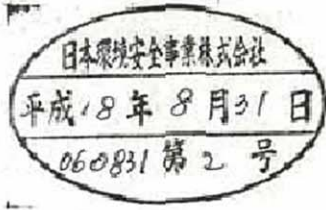 日本環境安全事業株式会社
平成18年8月31日
060831第2号